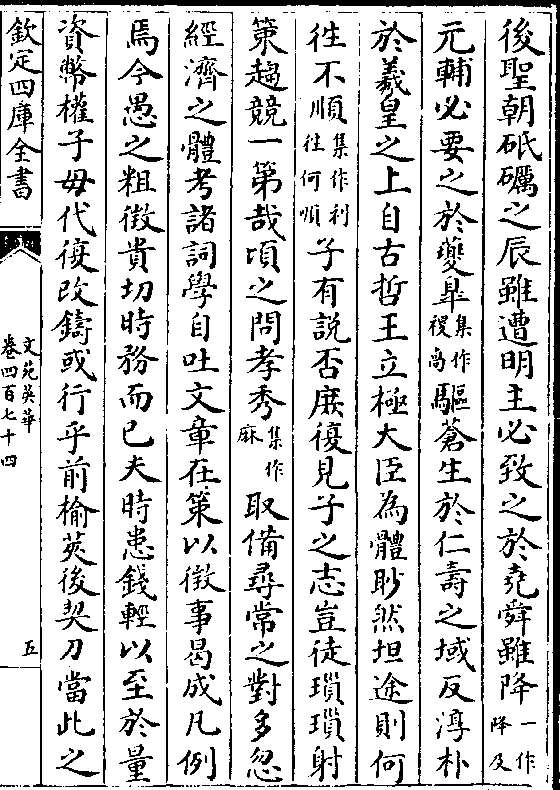 後聖朝砥礪之辰雖遭明主必致之於堯舜雖降一作降及
元輔必要之於夔臯集作稷卨驅蒼生於仁壽之域反淳朴
於羲皇之上自古哲王立極大臣為體眇然坦途則何
徃不順集作利往何順子有説否庶復見子之志豈徒瑣瑣射
策趨競一第哉頃之問孝秀集作麻取備尋常之對多忽
經濟之體考諸詞學自吐文章在策以徴事曷成凡例
焉今愚之粗徴貴切時務而已夫時患錢輕以至於量
資幣權子毋代復改鑄或行乎前榆莢後契刀當此之
欽定四庫全書
文苑英華
卷四百七十四
五